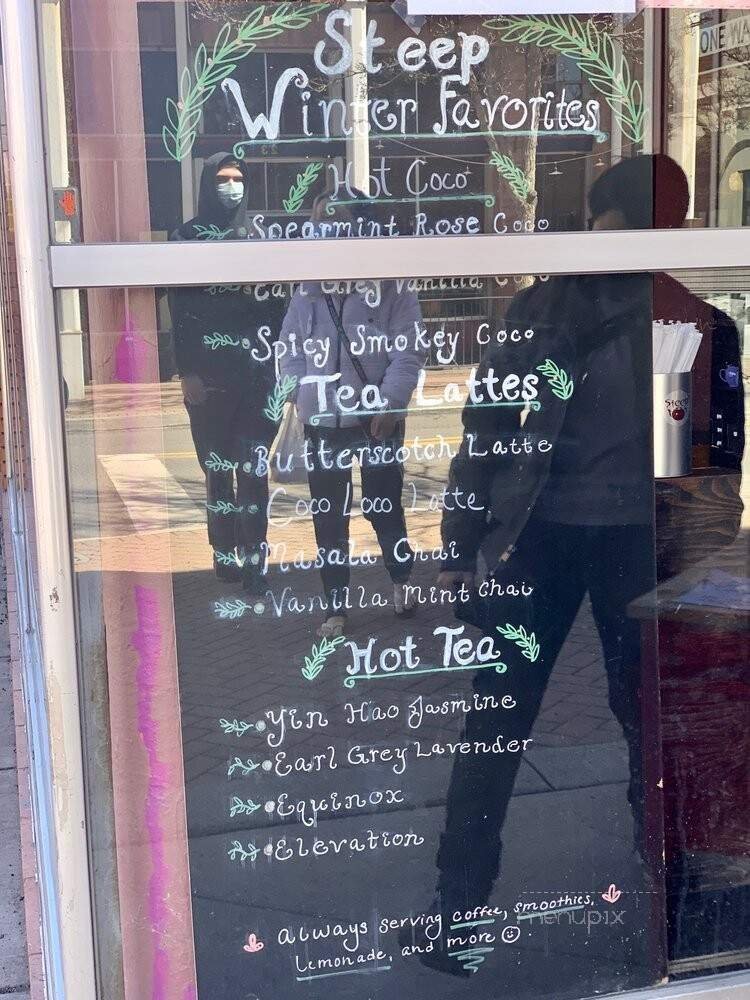 ONE WA
Steep
Winter Favorites
Hot Coco
Spearmint Rose Coco
Earl Grey Vanilla Coco
Spicy Smokey Coco
Tea Lattes
Butterscotch Latte
Coco Loco Latte
Masala Chai
Vanilla Mint Chai
Hot Tea
Yin Hao Jasmine
Earl Grey Lavender
Equinox
Elevation
Always serving coffee, smoothies,
Lemonade, and more ☺
Steep
menupix